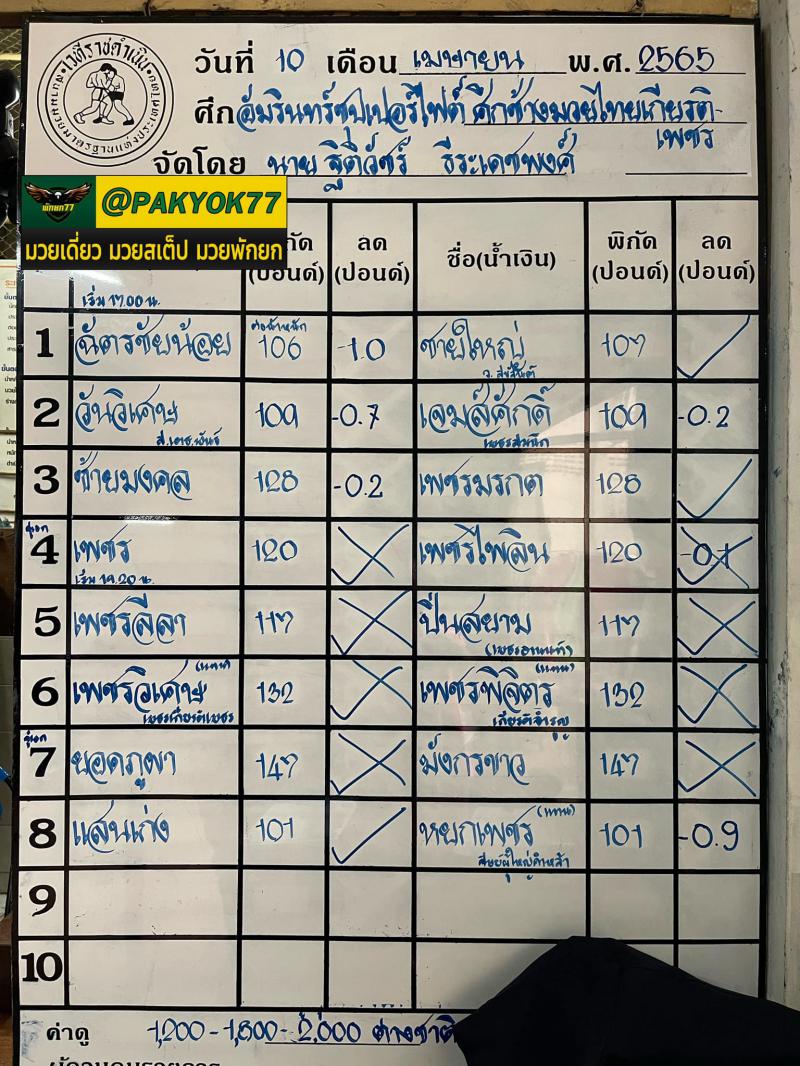 เวทีราชดำเนิน
วันที่ 10 เดือน เมษายน พ.ศ. 2565
ศึก อัมรินทร์ซุปเปอร์ไฟต์ ศึกช้างมวยไทยเกียรติ-
เพชร
จัดโดย นาย ฐิติวัชร์ ธีระเดชพงค์
พักยก77
@PAKYOK77
มวยเดี่ยว มวยสเต็ป มวยพักยก
กัด (ปอนด์) ลด (ปอนด์) ชื่อ(น้ำเงิน) พิกัด (ปอนด์) ลด (ปอนด์)
เริ่ม 17.00 น.
1 ฉัตรชัยน้อย ต่อน้ำหนัก 106 -1.0 ชายใหญ่ 107
2 วันวิเศษ 109 -0.7 เจมส์ศักดิ์ 109 -0.2
3 ซ้ายมงคล 128 -0.2 เพชรมรกต 128
คู่เอก
4 เพชร 120 เพชรไพลิน 120 -0.1
เริ่ม 19.20 น.
5 เพชรลีลา 117 ปืนสยาม 117
6 เพชรวิเศษ (แทน) 132 เพชรพิจิตร (แทน) 132
เพชรเกียรติเพชร เกียรติจำรูญ
คู่เอก
7 ยอดภูผา 147 มังกรขาว 147
8 แสนเก่ง 101 หยกเพชร (แทน) 101 -0.9
ศิษย์ผู้ใหญ่คำหล้า
9
10
ค่าดู 1,200-1,800-2,000 ต่างชาติ